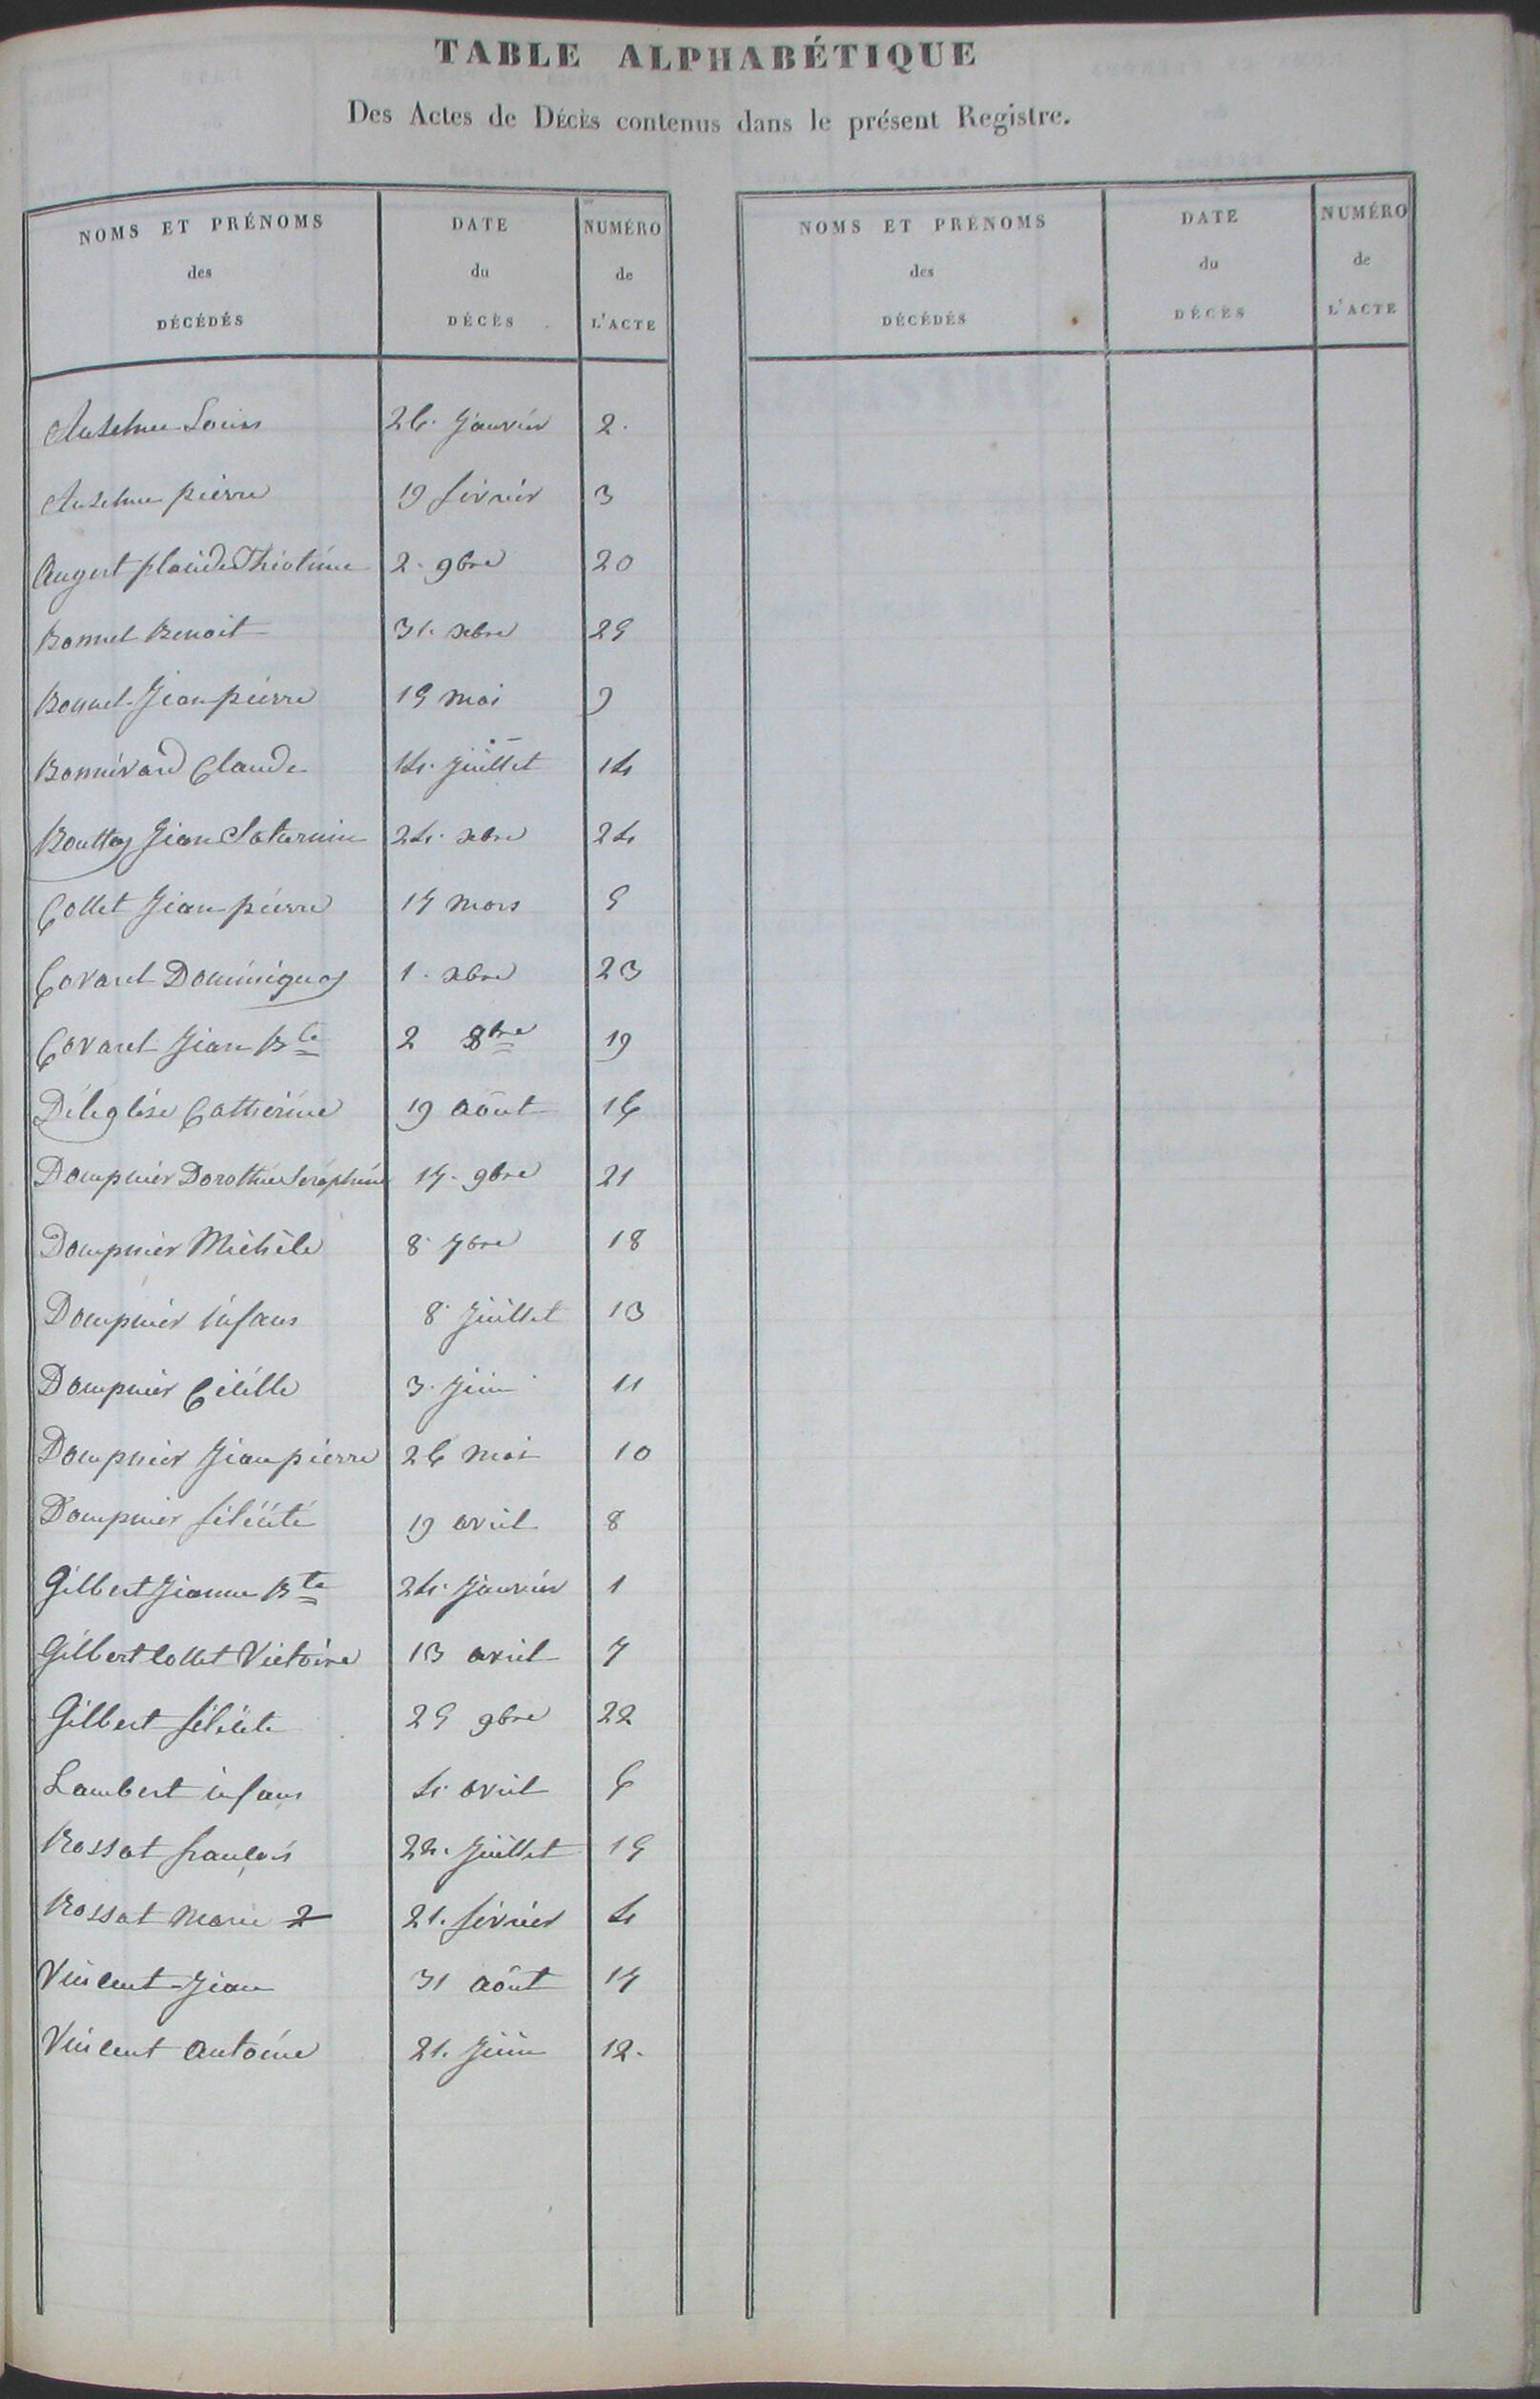 TABLE ALPHABÉTIQUE
Des Actes de Décès contenus dans le présent Registre.
NOMS ET PRÉNOMS des DÉCÉDÉS
DATE du DÉCÈS
NUMÉRO de L'ACTE
NOMS ET PRÉNOMS des DÉCÉDÉS
DATE du DÉCÈS
NUMÉRO de L'ACTE
Anselme Louis 26. Janvier 2.
Anselme pierre 19 février 3
Augert placide Théotime 2. 9bre 20
Bonnel Benoit 31. xbre 25
Bonnel Jean pierre 15 mai 9
Bonnivard Claude 14. Juillet 14
Bouttaz Jean Saturnin 24. xbre 24
Collet Jean pierre 17 mars 5
Covarel Dominique 1. xbre 23
Covarel Jean Bte 2 8bre 19
Déléglise Catherine 19 août 16
Dompnier Dorothée Séraphine 17. 9bre 21
Dompnier Michèle 8. 7bre 18
Dompnier infans 8. Juillet 13
Dompnier Cécille 3. Juin 11
Dompnier Jean pierre 26 mai 10
Dompnier félicité 19 avril 8
Gilbert Jeanne Bte 24. Janvier 1
Gilbert Collet Victoire 13 avril 7
Gilbert félicité 25 9bre 22
Lambert infans 4. avril 6
Rossat françois 22. Juillet 15
Rossat Marie 2 21. février 4
Vincent Jean 31 août 17
Vincent antoine 21. Juin 12.